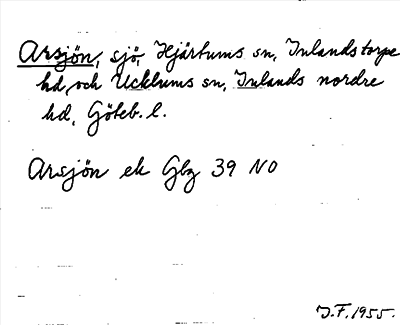 Arsjön, sjö, Hjärtums sn, Inlands torpe
hd, och Ucklums sn, Inlands nordre
hd, Göteb. l.
Arsjön ek Gbg 39 NO
J.F. 1955.